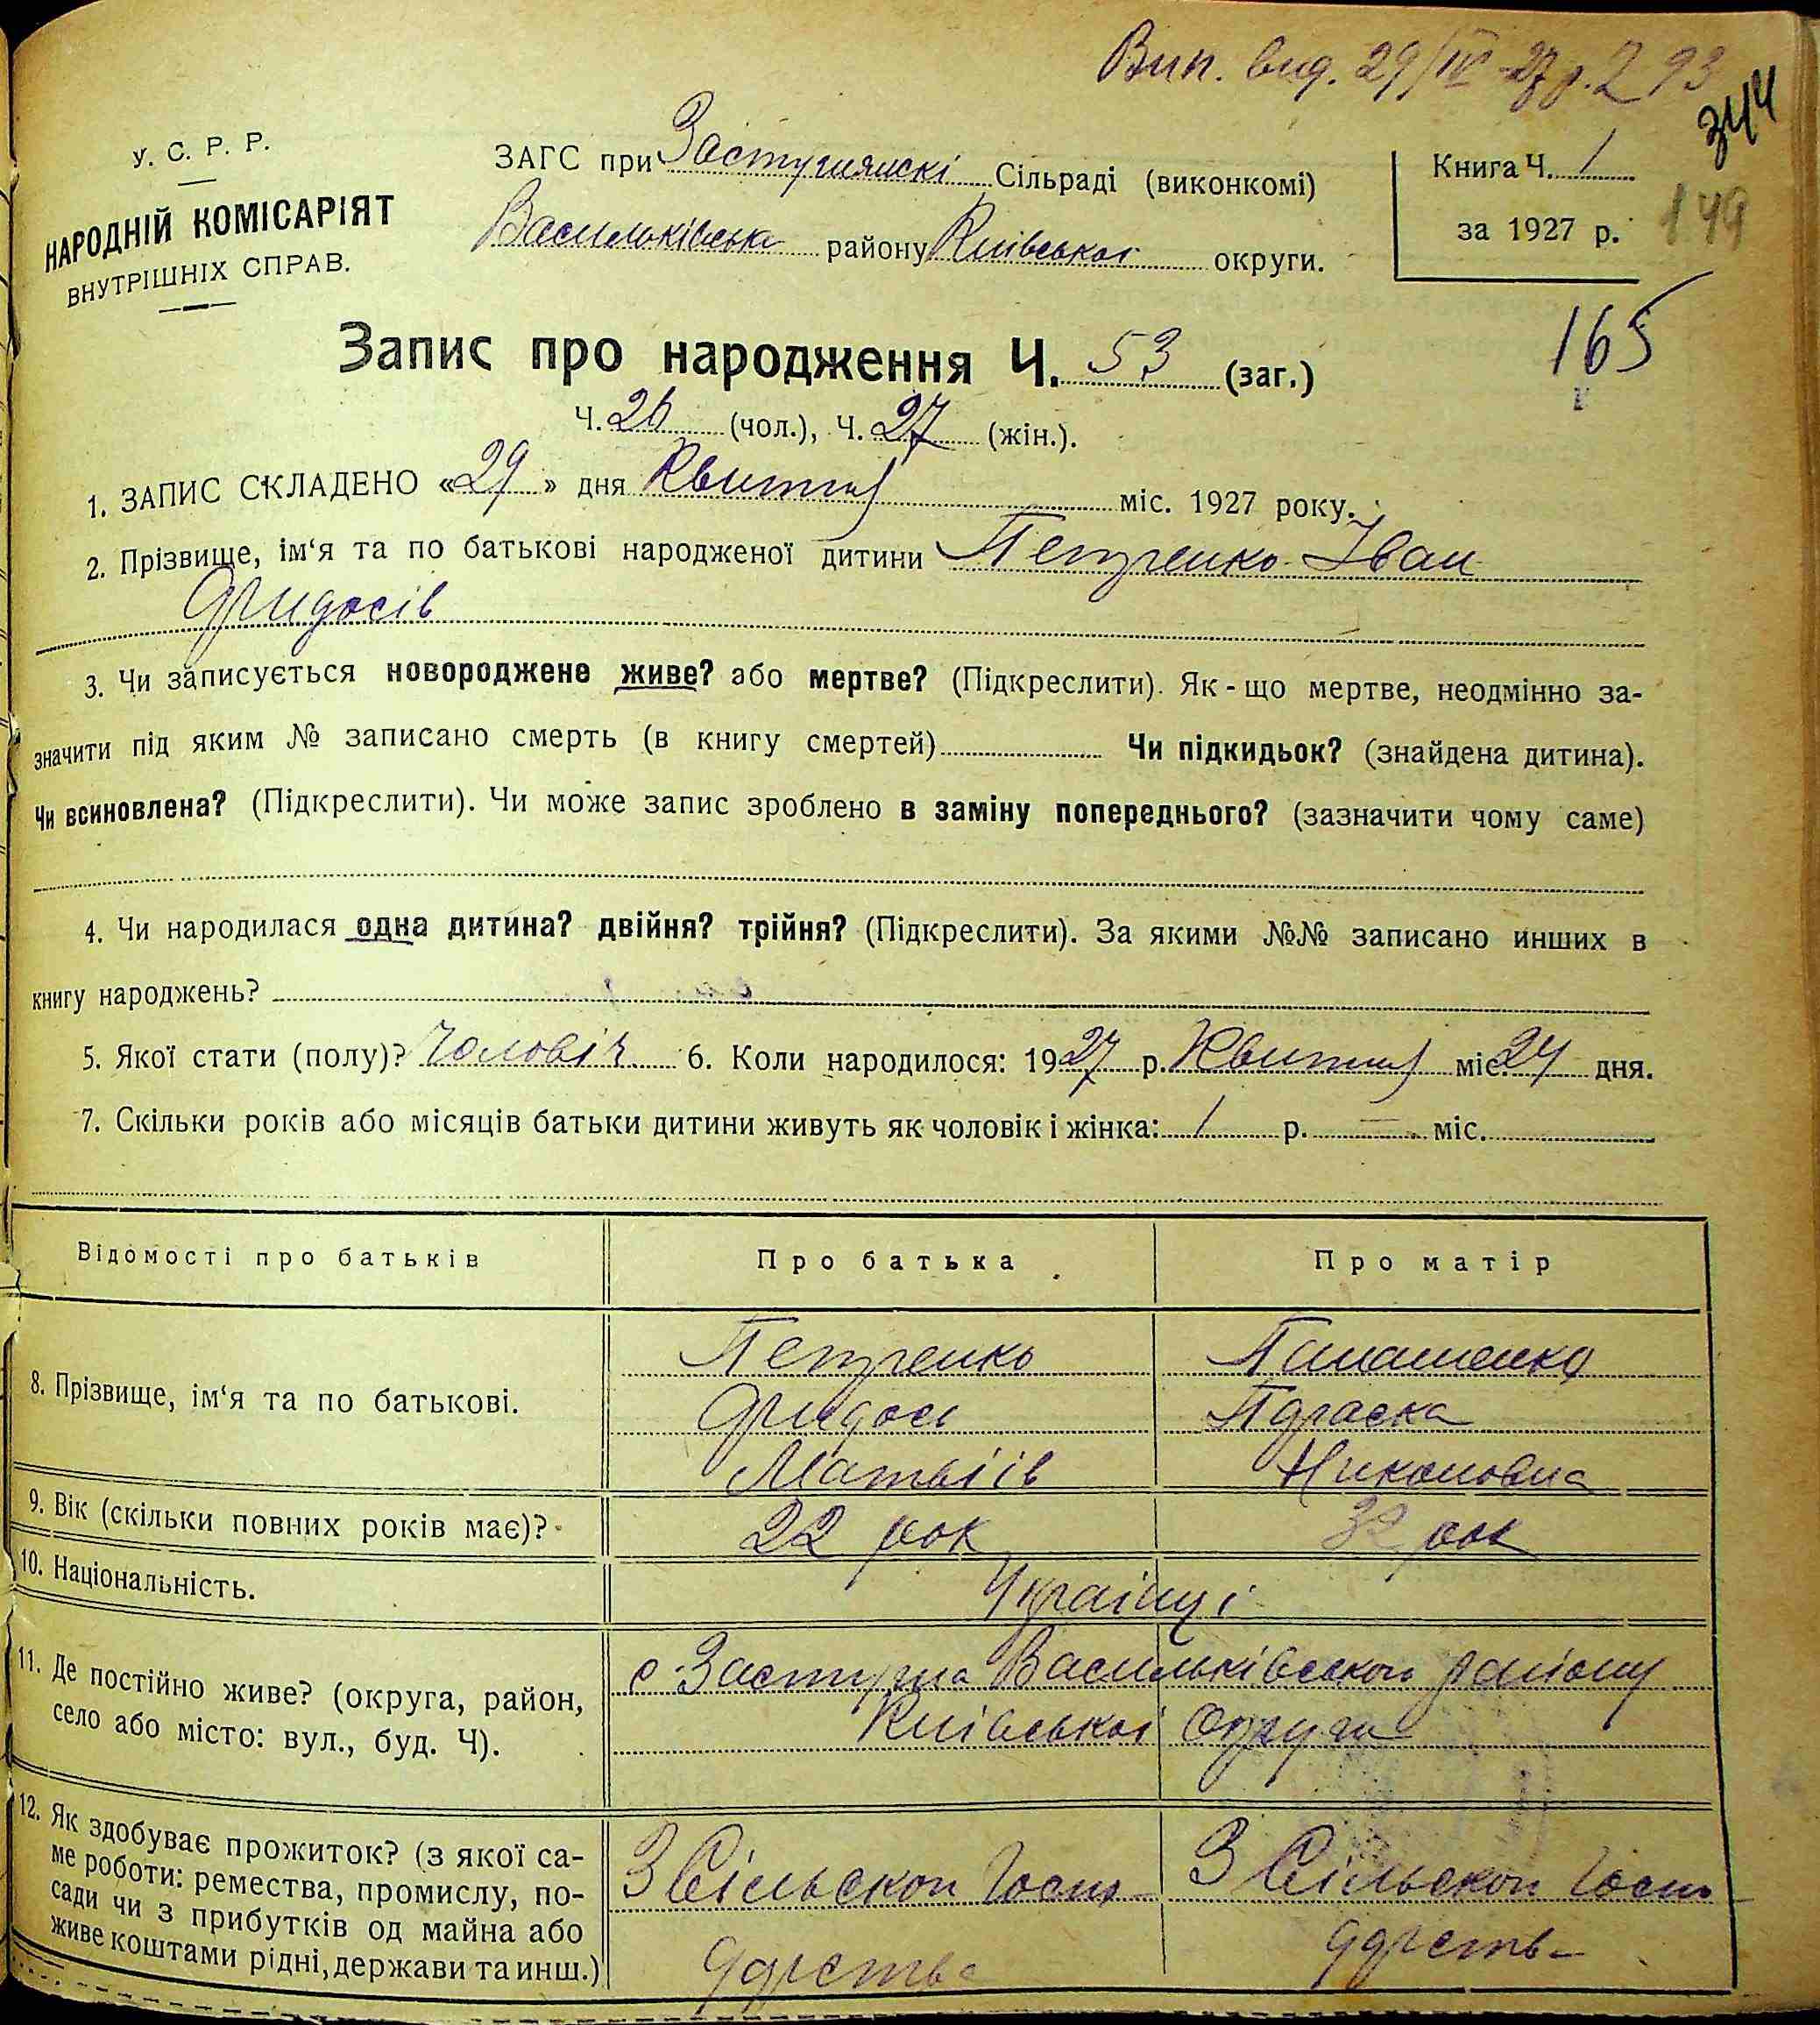 Вип. вид. 29/IV-27 р. 2 93
344
У. С. Р. Р.
НАРОДНІЙ КОМІСАРІЯТ
ВНУТРІШНІХ СПРАВ.
ЗАГС при Застугнянскі Сільраді (виконкомі)
Васильківська району Київськоі округи.
Книга Ч. 1
за 1927 р.
149
165
Запис про народження Ч. 53 (заг.)
Ч. 26 (чол.), Ч. 27 (жін.).
1. ЗАПИС СКЛАДЕНО «29» дня Квитня міс. 1927 року.
2. Прізвище, ім‘я та по батькові народженої дитини Петренко Іван
Фридосів
3. Чи записується новороджене живе? або мертве? (Підкреслити). Як-що мертве, неодмінно за-
значити під яким № записано смерть (в книгу смертей) Чи підкидьок? (знайдена дитина).
Чи всиновлена? (Підкреслити). Чи може запис зроблено в заміну попереднього? (зазначити чому саме)
4. Чи народилася одна дитина? двійня? трійня? (Підкреслити). За якими №№ записано инших в
книгу народжень?
5. Якої стати (полу)? Чоловіч 6. Коли народилося: 1927 р. Квитня міс. 24 дня.
7. Скільки років або місяців батьки дитини живуть як чоловік і жінка: 1 р. — міс.
Відомості про батьків Про батька Про матір
8. Прізвище, ім‘я та по батькові.
Петренко
Фридось
Матвіів
Параска
Никоновна
9. Вік (скільки повних років має)? 22 рок 32 рок
10. Національність. Українці
11. Де постійно живе? (округа, район,
село або місто: вул., буд. Ч).
с. Застугна Васильківского району
Київськоі Округи
12. Як здобуває прожиток? (з якої са-
ме роботи: ремества, промислу, по-
сади чи з прибутків од майна або
живе коштами рідні, держави та инш.)
З Сільскои Госпо
дарства
З Сільскои Госпо
дарства